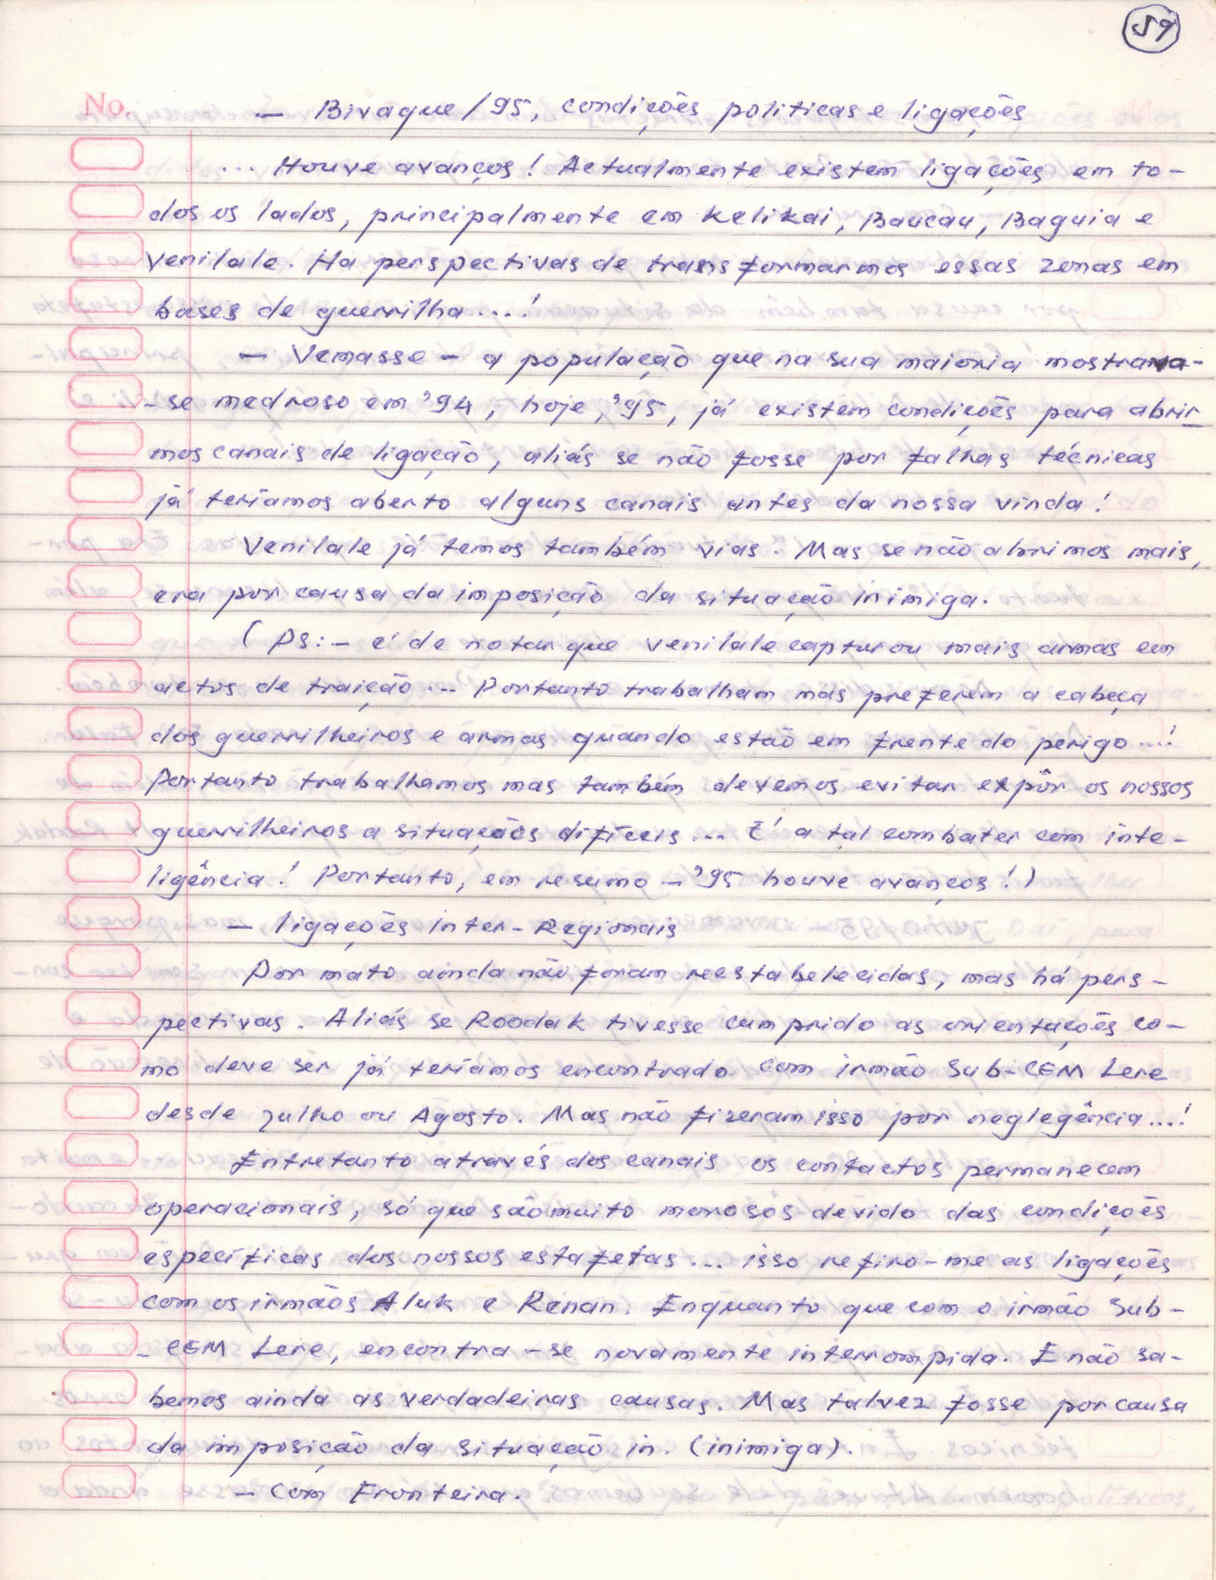 59
No.
— Bivaque/95, condições politicas e ligações
... Houve avanços! Actualmente existem ligações em to-
dos os lados, principalmente em Kelikai, Baucau, Baguia e
Venilale. Ha perspectivas de transformarmos essas zonas em
bases de guerrilha....!
— Vemasse — a população que na sua maioria mostrava-
-se medroso em '94, hoje, '95, já existem condições para abrir
mos canais de ligação, aliás se não fosse por falhas técnicas
já teríamos aberto alguns canais antes da nossa vinda!
Venilale já temos também vias. Mas se não abrimos mais,
era por causa da imposição da situação inimiga.
(PS:- é de notar que Venilale capturou mais armas em
actos de traição... Portanto trabalham mas preferem a cabeça
dos guerrilheiros e armas quando estão em frente do perigo...!
Portanto trabalhamos mas também devemos evitar expôr os nossos
guerrilheiros a situações difíceis... É a tal combater com inte-
ligência! Portanto, em resumo - '95 houve avanços!)
— Ligações Inter-Regionais
Por mato ainda não foram reestabelecidas, mas há pers-
pectivas. Aliás se Roodak tivesse cumprido as orientações co-
mo deve ser já teríamos encontrado com irmão Sub-CEM Lere
desde Julho ou Agosto. Mas não fizeram isso por neglegência...!
Entretanto através dos canais os contactos permanecem
operacionais, só que são muito morosos devido das condições
específicas dos nossos estafetas... isso refiro-me as ligações
com os irmãos Aluk e Renan. Enquanto que com o irmão Sub-
-CEM Lere, encontra-se novamente interrompida. E não sa-
bemos ainda as verdadeiras causas. Mas talvez fosse por causa
da imposição da situação in. (inimiga).
— Com Fronteira.